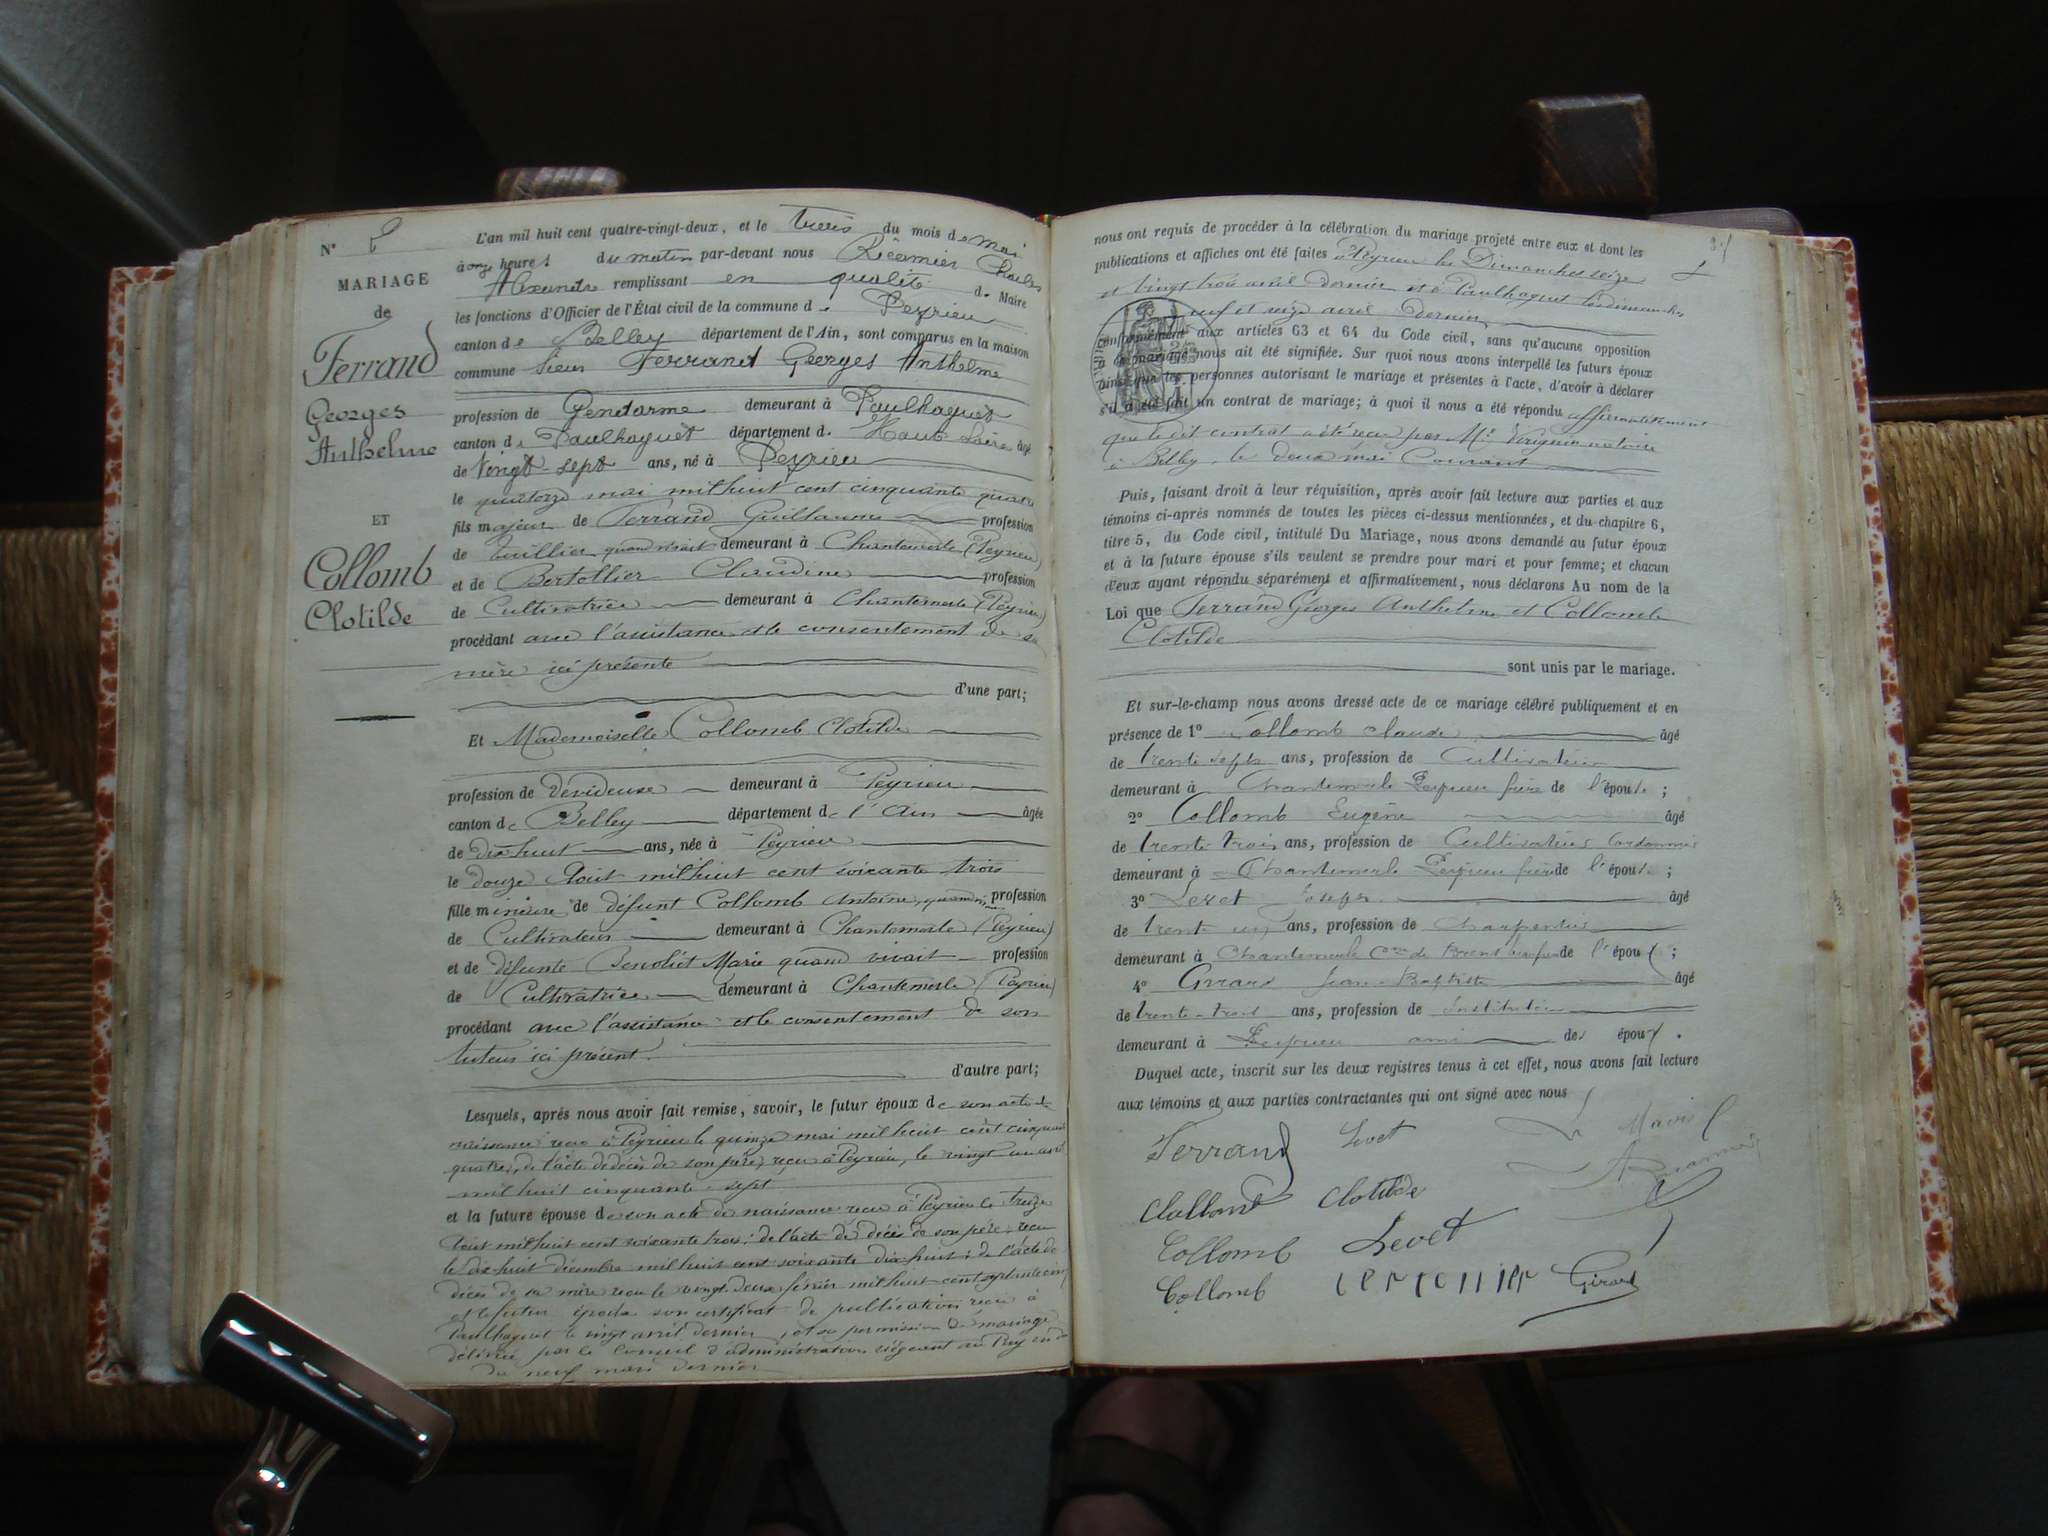 N°
MARIAGE
de
Ferrand
Georges
Anthelme
ET
Collomb
Clotilde
L'an mil huit cent quatre-vingt-deux, et le trois du mois de mai
à onze heures du matin par-devant nous Récamier Charles
Alexandre remplissant en qualité de Maire
les fonctions d'Officier de l'État civil de la commune de Peyrieu
canton de Belley département de l'Ain, sont comparus en la maison
commune sieur Ferrand Georges Anthelme
profession de Gendarme demeurant à Paulhaguet
canton de Paulhaguet département de Haute Loire âgé
de vingt-sept ans, né à Peyrieu
le quatorze mai mil huit cent cinquante quatre
fils majeur de Ferrand Guillaume profession
de tuillier quand vivait demeurant à Chantemerle (Peyrieu)
et de Bertollier Claudine profession
de Cultivatrice demeurant à Chantemerle (Peyrieu)
procédant avec l'assistance et le consentement de sa
mère ici présente
d'une part;
Et Mademoiselle Collomb Clotilde
profession de dévideuse demeurant à Peyrieu
canton de Belley département de l'Ain âgée
de dix huit ans, née à Peyrieu
le douze Août mil huit cent soixante trois
fille mineure de défunt Collomb Antoine, profession
de Cultivateur demeurant à Chantemerle (Peyrieu)
et de défunte Benoliet Marie quand vivait profession
de Cultivatrice demeurant à Chantemerle (Peyrieu)
procédant avec l'assistance et le consentement de son
tuteur ici présent.
d'autre part;
Lesquels, après nous avoir fait remise, savoir, le futur époux de son acte de
naissance reçu à Peyrieu le quinze mai mil huit cent cinquante
quatre, de l'acte de décès de son père, reçu à Peyrieu, le vingt un avril
mil huit cinquante sept
et la future épouse de son acte de naissance reçu à Peyrieu le treize
Août mil huit cent soixante trois: de l'acte de décès de son père, reçu
le dix huit décembre mil huit cent soixante dix huit: de l'acte de
décès de sa mère reçu le vingt deux février mil huit cent
et le futur époux son certificat de publication reçu à
Paulhaguet le vingt avril dernier, et sa permission de mariage
délivrée par le Conseil d'administration siégeant au Puy
du neuf mars dernier
nous ont requis de procéder à la célébration du mariage projeté entre eux et dont les
publications et affiches ont été faites à Peyrieu les Dimanches seize
et vingt trois avril dernier et à Paulhaguet les dimanches
neuf et seize avril dernier
conformément aux articles 63 et 64 du Code civil, sans qu'aucune opposition
de mariage nous ait été signifiée. Sur quoi nous avons interpellé les futurs époux
ainsi que les personnes autorisant le mariage et présentes à l'acte, d'avoir à déclarer
s'il a été fait un contrat de mariage; à quoi il nous a été répondu affirmativement
que le dit contrat a été reçu par Me notaire
à Belley, le deux mai Courant
Puis, faisant droit à leur réquisition, après avoir fait lecture aux parties et aux
témoins ci-après nommés de toutes les pièces ci-dessus mentionnées, et du chapitre 6,
titre 5, du Code civil, intitulé Du Mariage, nous avons demandé au futur époux
et à la future épouse s'ils veulent se prendre pour mari et pour femme; et chacun
d'eux ayant répondu séparément et affirmativement, nous déclarons Au nom de la
Loi que Ferrand Georges Anthelme et Collomb
Clotilde
sont unis par le mariage.
Et sur-le-champ nous avons dressé acte de ce mariage célébré publiquement et en
présence de 1° Collomb Claude âgé
de trente sept ans, profession de Cultivateur
demeurant à Chantemerle Peyrieu frère de l'épouse;
2° Collomb Eugène âgé
de trente-trois ans, profession de Cultivateur Cordonnier
demeurant à Chantemerle Peyrieu frère de l'épouse;
3° Levet Joseph âgé
de trente un ans, profession de Charpentier
demeurant à Chantemerle Cne de de l'épou ;
4° Girard Jean-Baptiste âgé
de trente-trois ans, profession de Instituteur
demeurant à Peyrieu ami des époux.
Duquel acte, inscrit sur les deux registres tenus à cet effet, nous avons fait lecture
aux témoins et aux parties contractantes qui ont signé avec nous
Ferrand Levet
Clollomb Clotilde
Collomb Levet
Collomb Girard